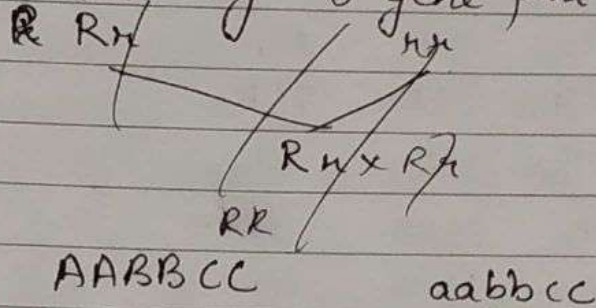 gene
Rr rr
Rr x Rr
RR
AABBCC aabbcc